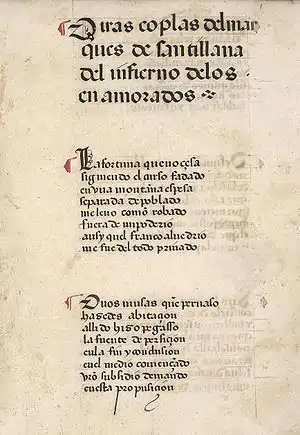 Otras coplas del mar
ques de santillana
del infierno delos
enamorados
La fortuna que no çesa
siguiendo el curso fadado
en vna montaña espesa
separada de poblado
me leuo como robado
fuera de mi poderio
asy quel franco aluedrio
me fue del todo priuado
O vos musas que en pernaso
hagedes abitaçion
alli do hizo pegasso
la fuente de perfiçion
en la fin y conclusion
en el medio començando
vr̃o subsidio demando
en esta proposiçion